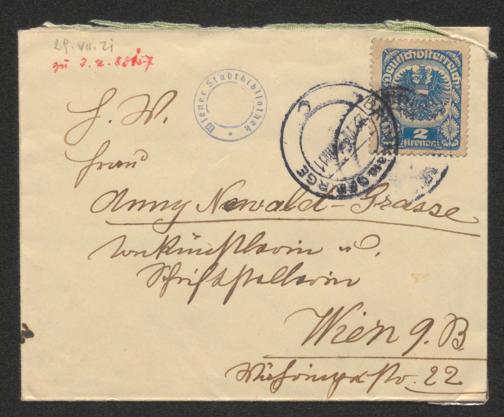 29. VII. 21
zu J. N.
Wiener Stadtbibliothek
Deutschösterreich
2
Kronen
H. W.
Frau
Anny Newald-Grasse
Tonkünstlerin u.
Schriftstellerin
Wien 9. B
22